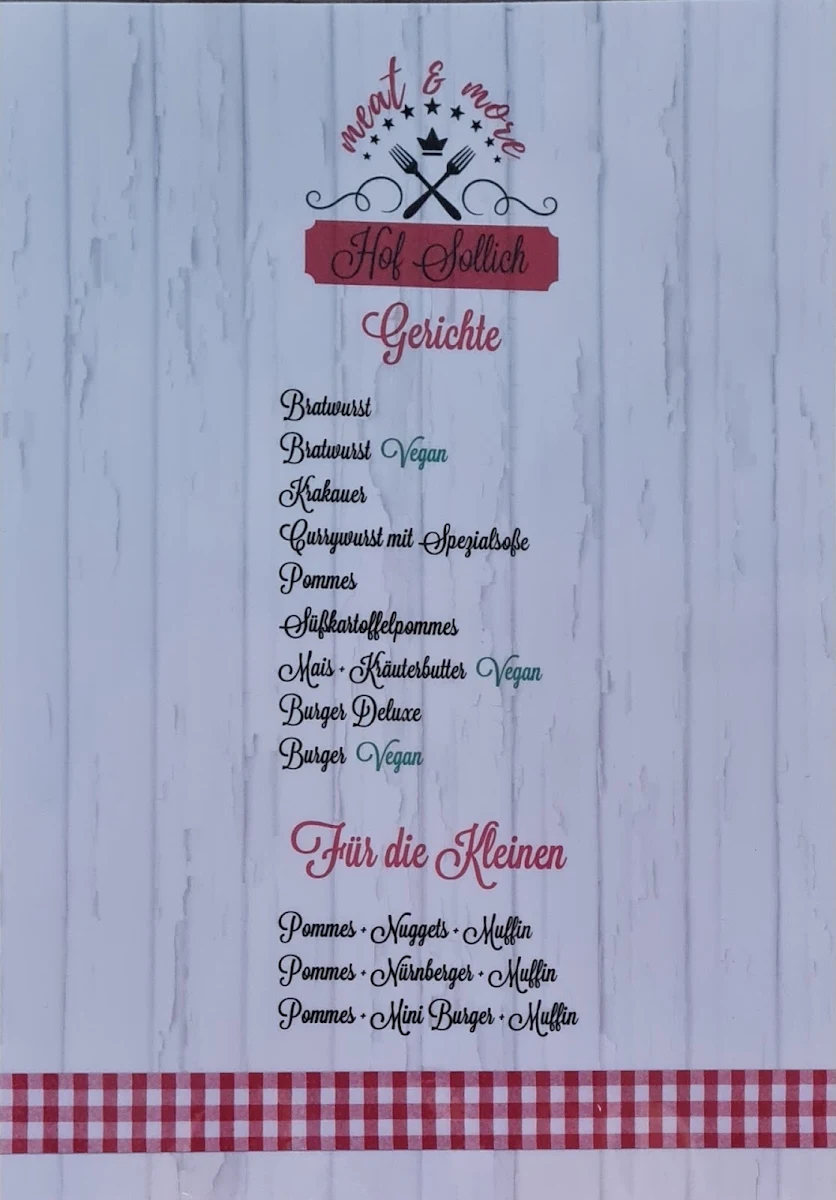 meat & more
Hof Sollich
Gerichte
Bratwurst
Bratwurst Vegan
Krakauer
Currywurst mit Spezialsoße
Pommes
Süßkartoffelpommes
Mais + Kräuterbutter Vegan
Burger Deluxe
Burger Vegan
Für die Kleinen
Pommes + Nuggets + Muffin
Pommes + Nürnberger + Muffin
Pommes + Mini Burger + Muffin